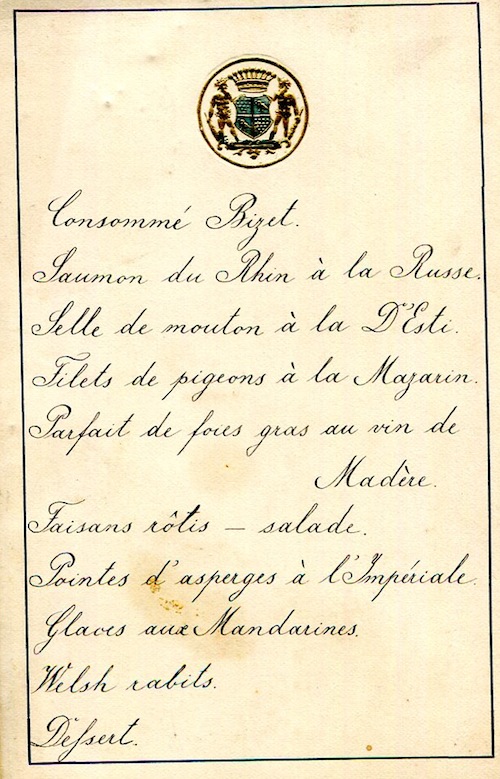 Consommé Bizet.
Saumon du Rhin à la Russe.
Selle de mouton à la D'Esti.
Filets de pigeons à la Mazarin.
Parfait de foies gras au vin de
Madère.
Faisans rôtis – salade.
Pointes d'asperges à l'Impériale.
Glaces aux Mandarines.
Welsh rabits.
Dessert.